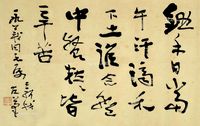 鋤禾日當
午汗滴禾
下土誰念盤
中餐粒々皆
辛苦